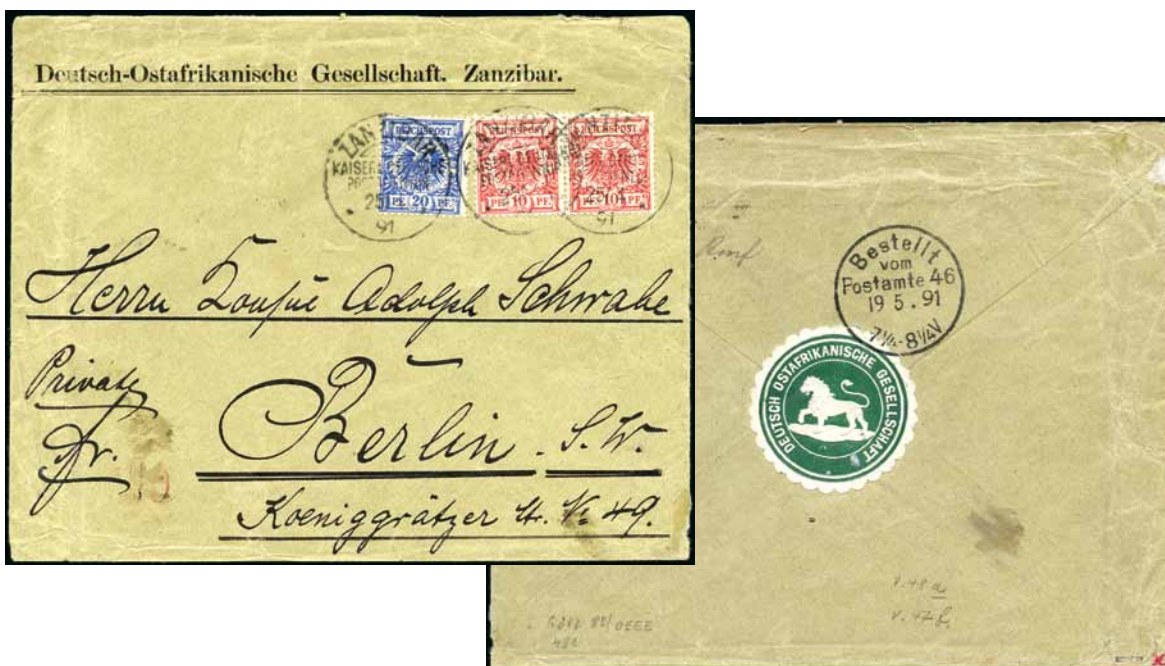 Deutsch-Ostafrikanische Gesellschaft. Zanzibar.
REICHSPOST REICHSPOST REICHSPOST
ZANZIBAR
KAISERL. DEUTSCHE
PF 20 PF PF 10 PF PF 10 PF
25
91
91
Herrn Consul Adolph Schwabe
Private
Fr.
Berlin. S.W.
Koeniggrätzer Str. No 49.
Bestellt
vom
Postamte 46
19 5. 91
7 1/4-8 1/4V
DEUTSCH OSTAFRIKANISCHE GESELLSCHAFT
V.48a
V.47b.